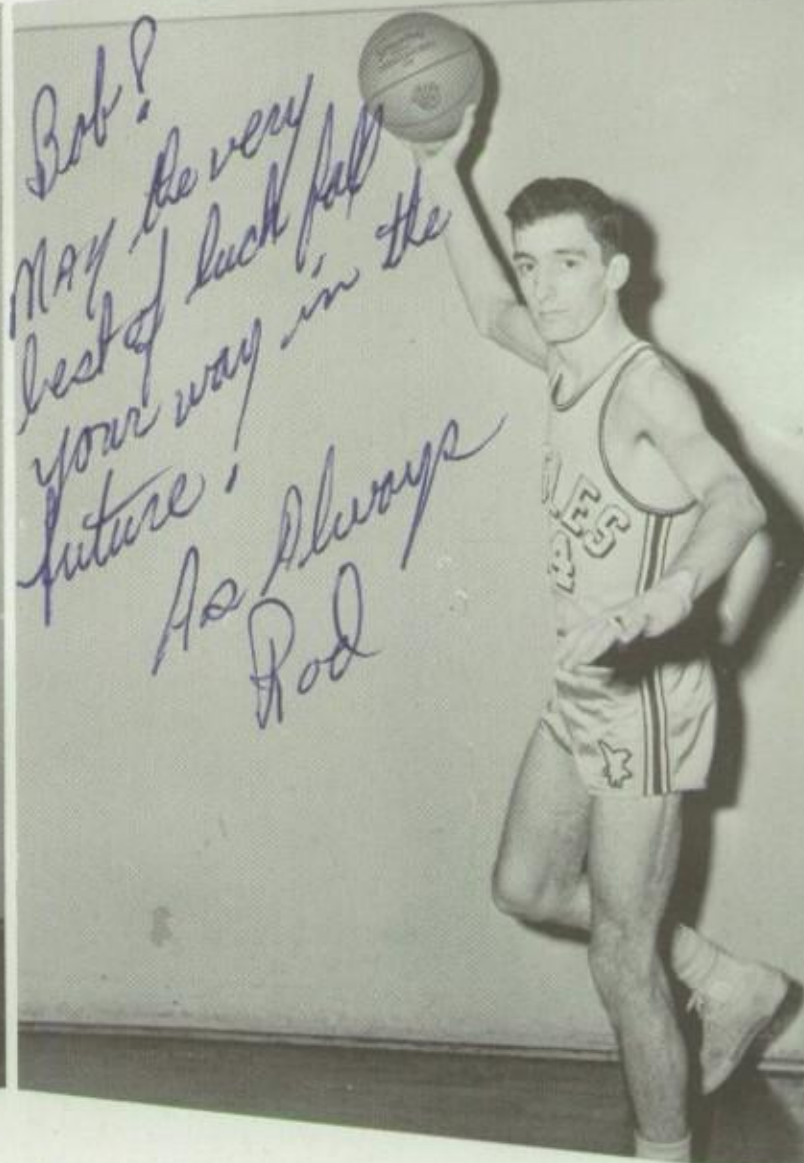 Bob!
MAY the very
best of luck fall
your way in the
future!
As Always
Rod
LES